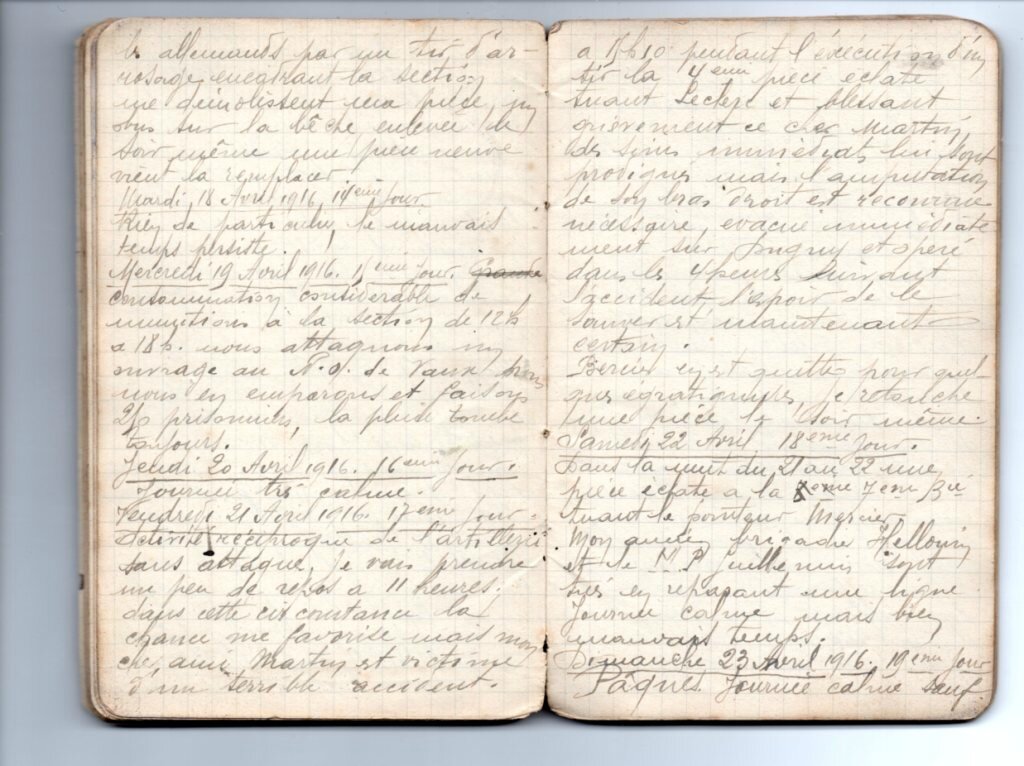 les allemands par un tir d'ar-
rosage encadrant la section
me démolissent une pièce, un
obus sur la bêche enlevée le
soir même une pièce neuve
vient la remplacer.
Mardi, 18 Avril 1916, 14eme Jour.
Rien de particulier, le mauvais
temps persiste.
Mercredi 19 Avril 1916. 15eme Jour. Grande
consommation considérable de
munitions à la section de 12h
a 18h. nous attaquons un
ouvrage au N.O. de Vaux nous
nous en emparons et faisons
prisonniers, la pluie tombe
toujours.
Jeudi 20 Avril 1916. 16eme Jour.
Journée très calme.
Vendredi 21 Avril 1916. 17eme Jour.
Activité réciproque de l'artillerie
sans attaque, je vais prendre
un peu de repos a 11 heures.
dans cette circonstance la
chance me favorise mais mon
cher ami Martin est victime
d'un terrible accident.
a h10 pendant l'éxécution d'un
tir la 4eme pièce éclate
tuant Leclerc et blessant
grièvement ce cher Martin,
des soins immédiats lui sont
prodigués mais l'amputation
de son bras droit est reconnue
nécessaire, evacué immédiate
ment sur Jugny et opéré
dans les 4 heures suivant
l'accident l'espoir de le
sauver est maintenant
certain.
en est quitte pour quel-
ques égratignures, je retouche
une pièce le soir même.
Samedi 22 Avril 18eme Jour.
Dans la nuit du 21 au 22 une
pièce éclate a la 7eme Bie
tuant le pointeur Mercier.
Mon ancien brigadier Hellouin
et le M.P. Guillemin sont
tués en reparant une ligne
Journée calme mais bien
mauvais temps.
Dimanche 23 Avril 1916. 19eme Jour
Pâques Journée calme sauf.